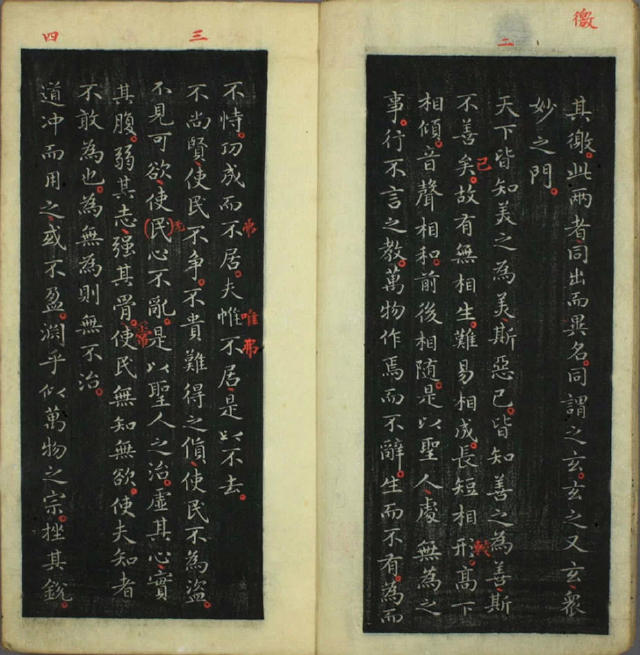 徼
其徼。此兩者同出而異名。同謂之玄。玄之又玄。衆
妙之門。
二
天下皆知美之為美斯惡已。皆知善之為善。斯
不善矣。故有無相生。難易相成。長短相形。髙下
已
較
相傾。音聲相和。前後相随。是以聖人處無為之
事。行不言之教。萬物作焉而不辭。生而不有。為而
不恃。功成而不居。夫惟不居。是以不去。
弗
唯
弗
三
不尚賢。使民不爭。不貴難得之貨。使民不為盜。
不見可欲。使(民)心不亂。是以聖人之治。虛其心。實
其腹。弱其志。强其骨。使民無知無欲。使夫知者
常
不敢為也。為無為則無不治。
四
道冲而用之。或不盈。淵乎似萬物之宗。挫其銳。